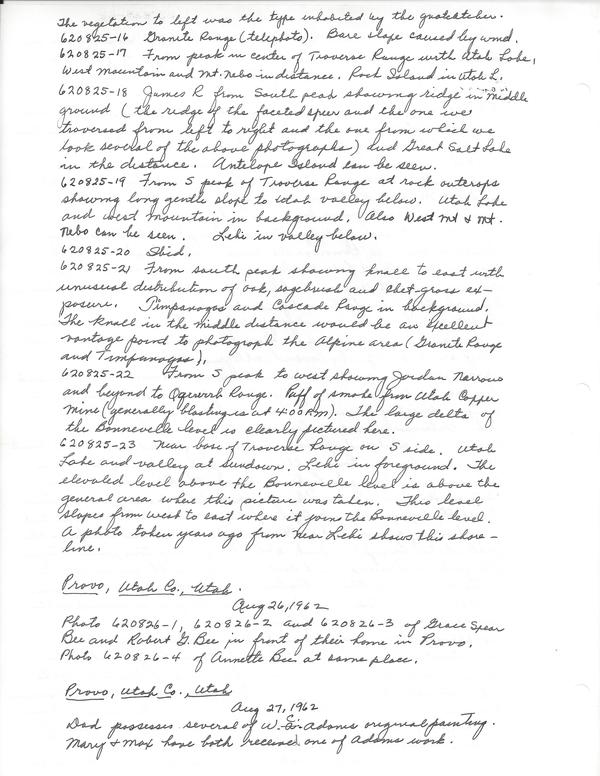 The vegetation to left was the type inhabited by the gnatcatcher.
620825-16 Granite Range (telephoto). Bare slope caused by wind.
620825-17 From peak in center of Traverse Range with Utah Lake,
West Mountain and Mt. Nebo in distance. Rock Island in Utah L.
620825-18 James R from South peak showing ridge in middle
ground (the ridge of the faceted spur and the one we
traversed from left to right and the one from which we
took several of the above photographs) and Great Salt Lake
in the distance. Antelope Island can be seen.
620825-19 From S peak of Traverse Range at rock outcrops
showing long gentle slope to Utah valley below. Utah Lake
and West Mountain in background. Also West Mt & Mt.
Nebo can be seen. Lehi in valley below.
620825-20 Ibid.
620825-21 From south peak showing knall to east with
unusual distribution of oak, sagebrush and cheat-grass ex-
posure. Timpanogos and Cascade Range in background.
The knall in the middle distance would be an excellent
vantage point to photograph the Alpine area (Granite Range
and Timpanogas).
620825-22 From S peak to west showing Jordan Narrows
and beyond to Oquirrh Range. Puff of smoke from Utah Copper
Mine (generally blasting is at 4:00 PM). The large delta of
the Bonneville level is clearly pictured here.
620825-23 Near base of Traverse Range on S side. Utah
Lake and valley at sundown. Lehi in foreground. The
elevated level above the Bonneville level is above the
general area where this picture was taken. This level
slopes from west to east where it joins the Bonneville level.
A photo taken years ago from near Lehi shows this shore-
line.
Provo, Utah Co., Utah.
Aug 26, 1962
Photo 620826-1, 620826-2 and 620826-3 of Grace Spear
Bee and Robert G. Bee in front of their home in Provo.
Photo 620826-4 of Annette Bee at same place.
Provo, Utah Co., Utah
Aug 27, 1962
Dad possesses several of W. E. Adams original painting.
Mary & Max have both received one of Adams work.